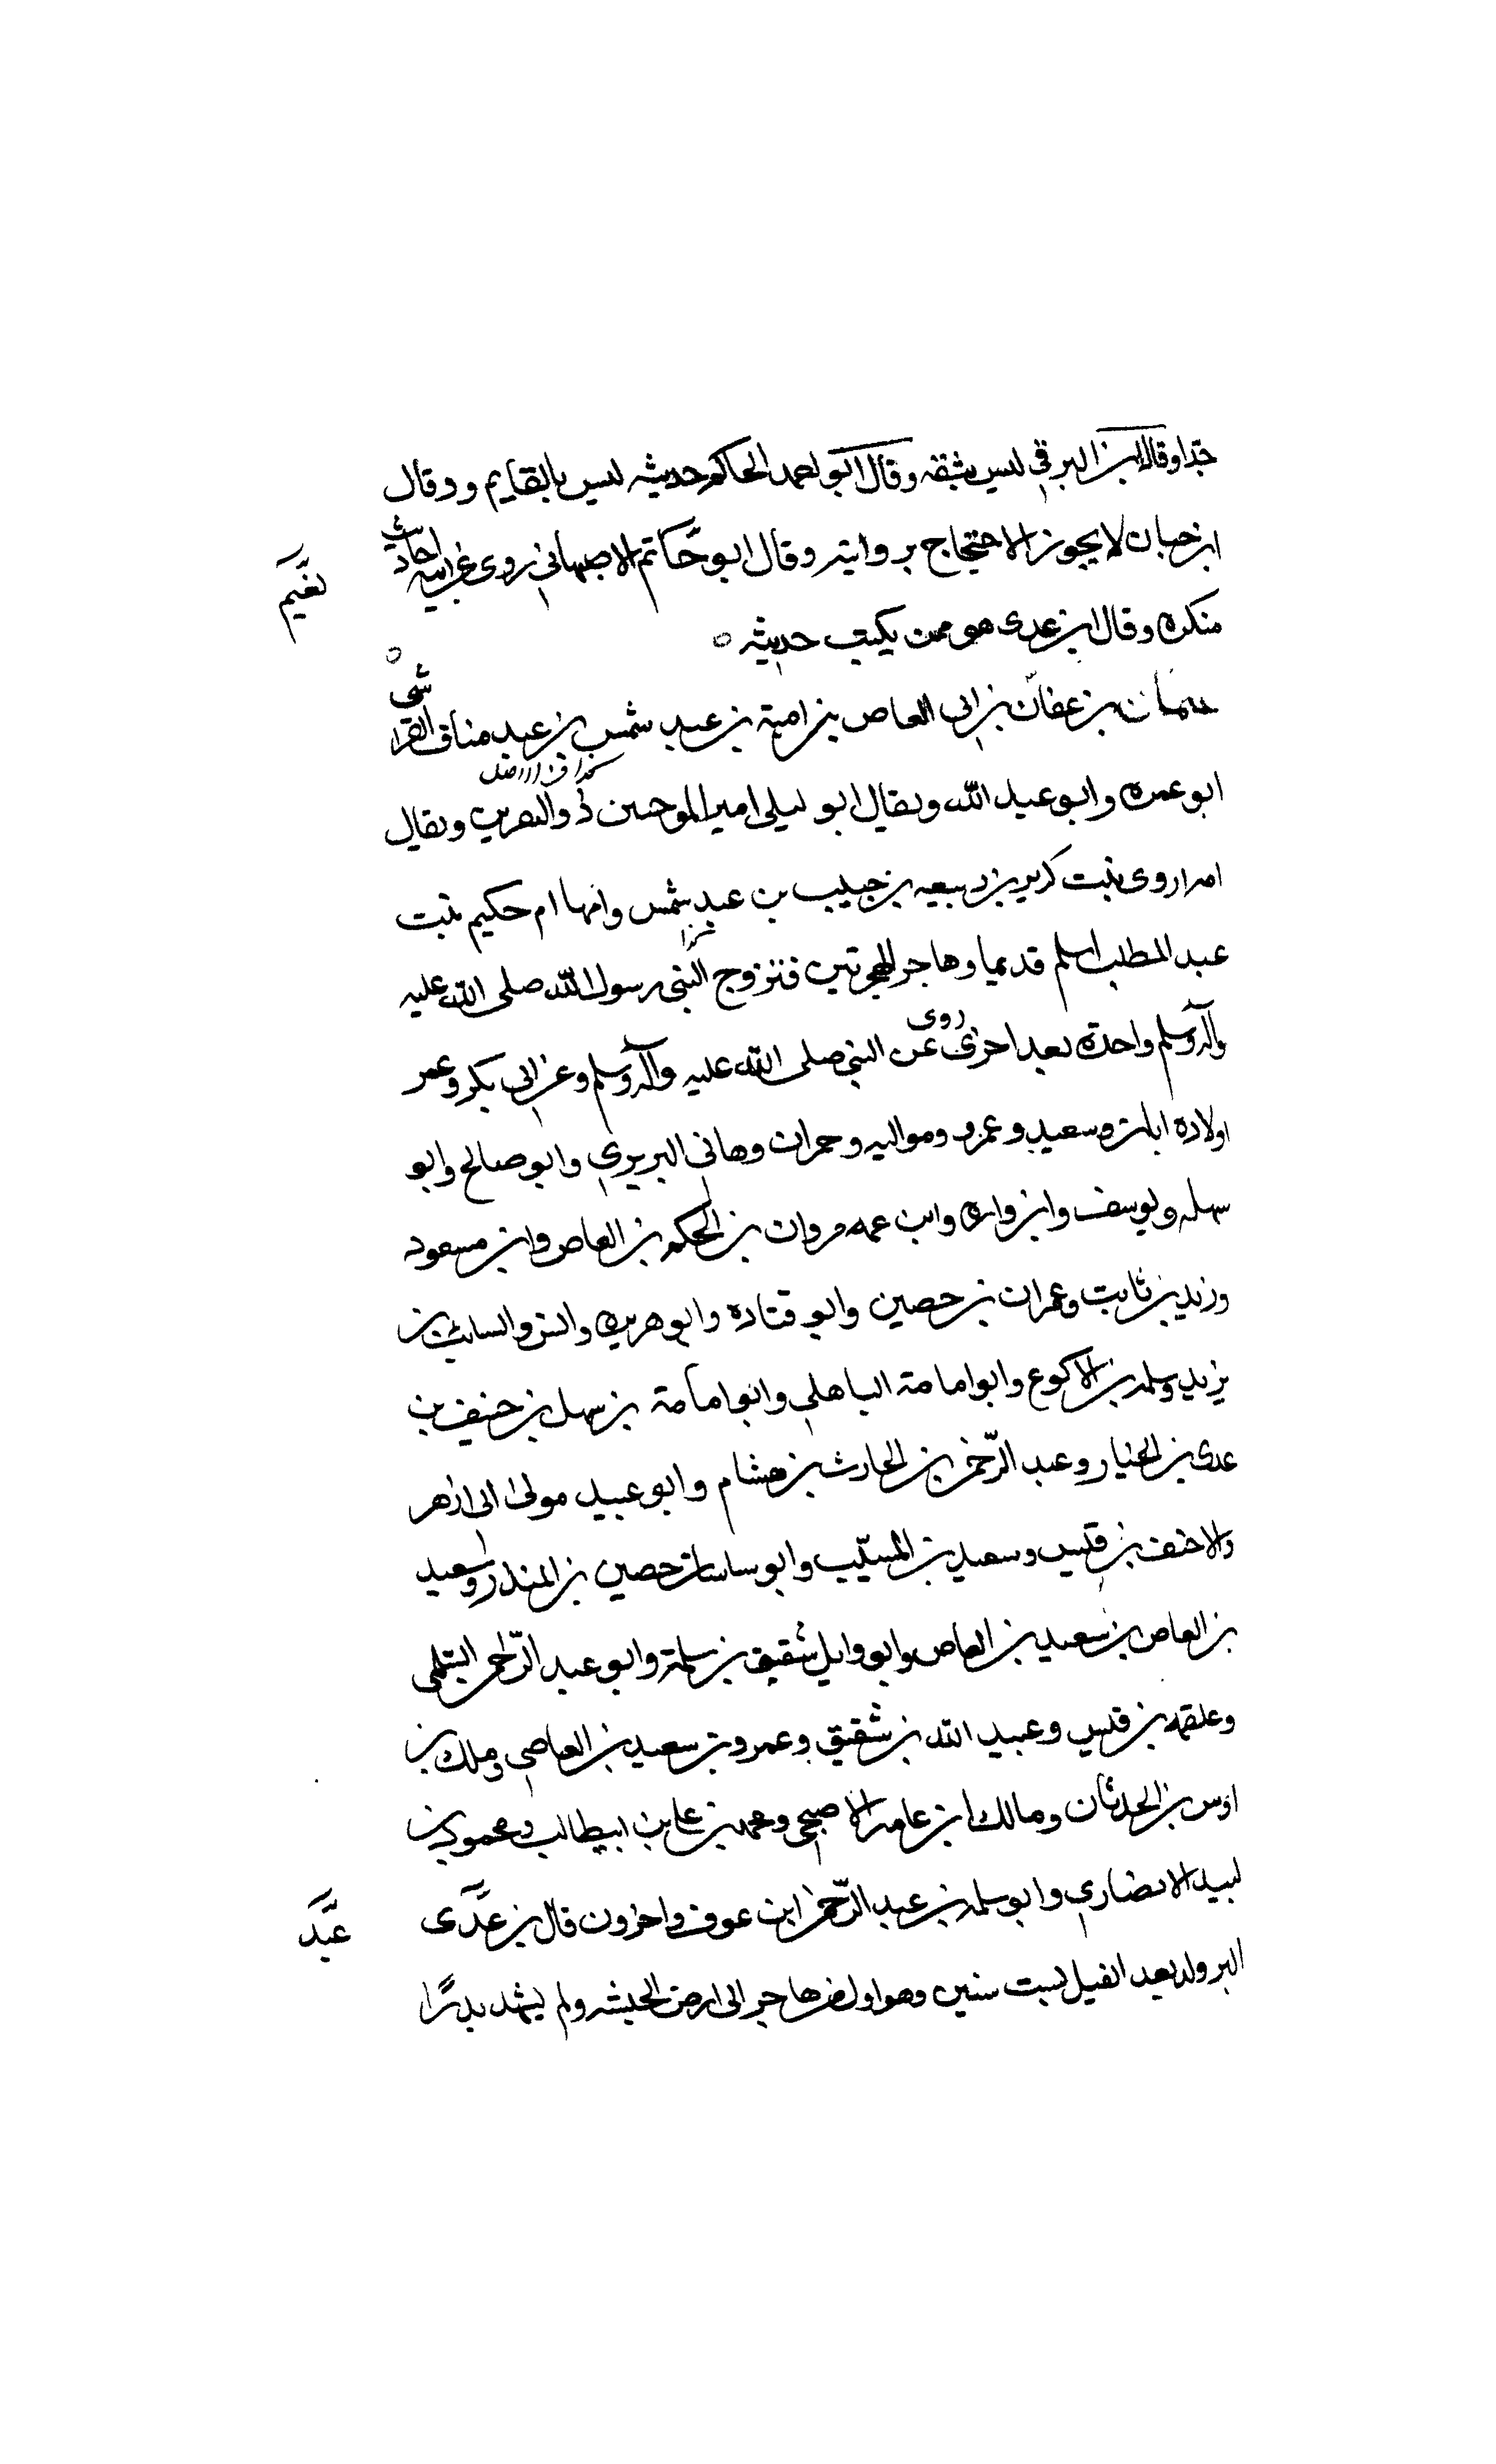 جدا وقال ابن البرقي ليس بثقه وقال ابو احمد الحاكم حديثه ليس بالقايم ووقال
ابن حبان لا يجوز الاحتجاج بروايته وقال ابو حاتم الاصبهاني روى عن ابيه احاديث
نعيم
منكره وقال ابن عدى هو ممن يكتب حديثه
عثمان بن عفان بن ابى العاص بن امية بن عبد شمس بن عبد مناف القرشى
ابو عمره وابو عبد الله ويقال ابو ليلى امير المومنين ذو النورين ويقال
امه اروى بنت كريز بن ربيعه بن حبيب بن عبد شمس وامها ام حكيم بنت
عبد المطلب اسلم قديما وهاجر الهجرتين فتزوج ابنتي رسول الله صلى الله عليه
وآله وسلم واحدة بعد اخرى روى عن النبي صلى الله عليه وآله وسلم وعن ابي بكر وعمر
اولاده ابان وسعيد وعمرو ومواليه وحمران وهاني البربري وابو صالح وابو
سهله ويوسف وابن واره وابن عمه مروان بن الحكم بن العاص وابن مسعود
وزيد بن ثابت وعمران بن حصين وابو قتاده وابو هريره وانس والسائب بن
يزيد وسلمه بن الاكوع وابو امامة الباهلي وابو امامة بن سهل بن حنيف بن
عدى بن الخيار وعبد الرحمن بن الحارث بن هشام وابو عبيد مولى ابى ازهر
والاحنف بن قيس وسعيد بن المسيّب وابو ساسان حصين بن المنذر وسعيد
بن العاص بن سعيد بن العاص وابو وايل شقيق بن سلمة وابو عبد الرّحمن السّلمى
وعلقمه بن قيس وعبيد الله بن شقيق وعمرو بن سعيد بن العاصي وملك بن
اوس بن الحدثان ومالك ابن عامر الاصبحى ومحمد بن على بن ابيطالب ومحمود بن
لبيد الانصاري وابو سلمه بن عبد الرّحمن ابن عوف واخرون قال بن عدى
عبد
البر ولد بعد الفيل بست سنين وهو اول من هاجر الى ارض الحبشه ولم يشهد بدرًا